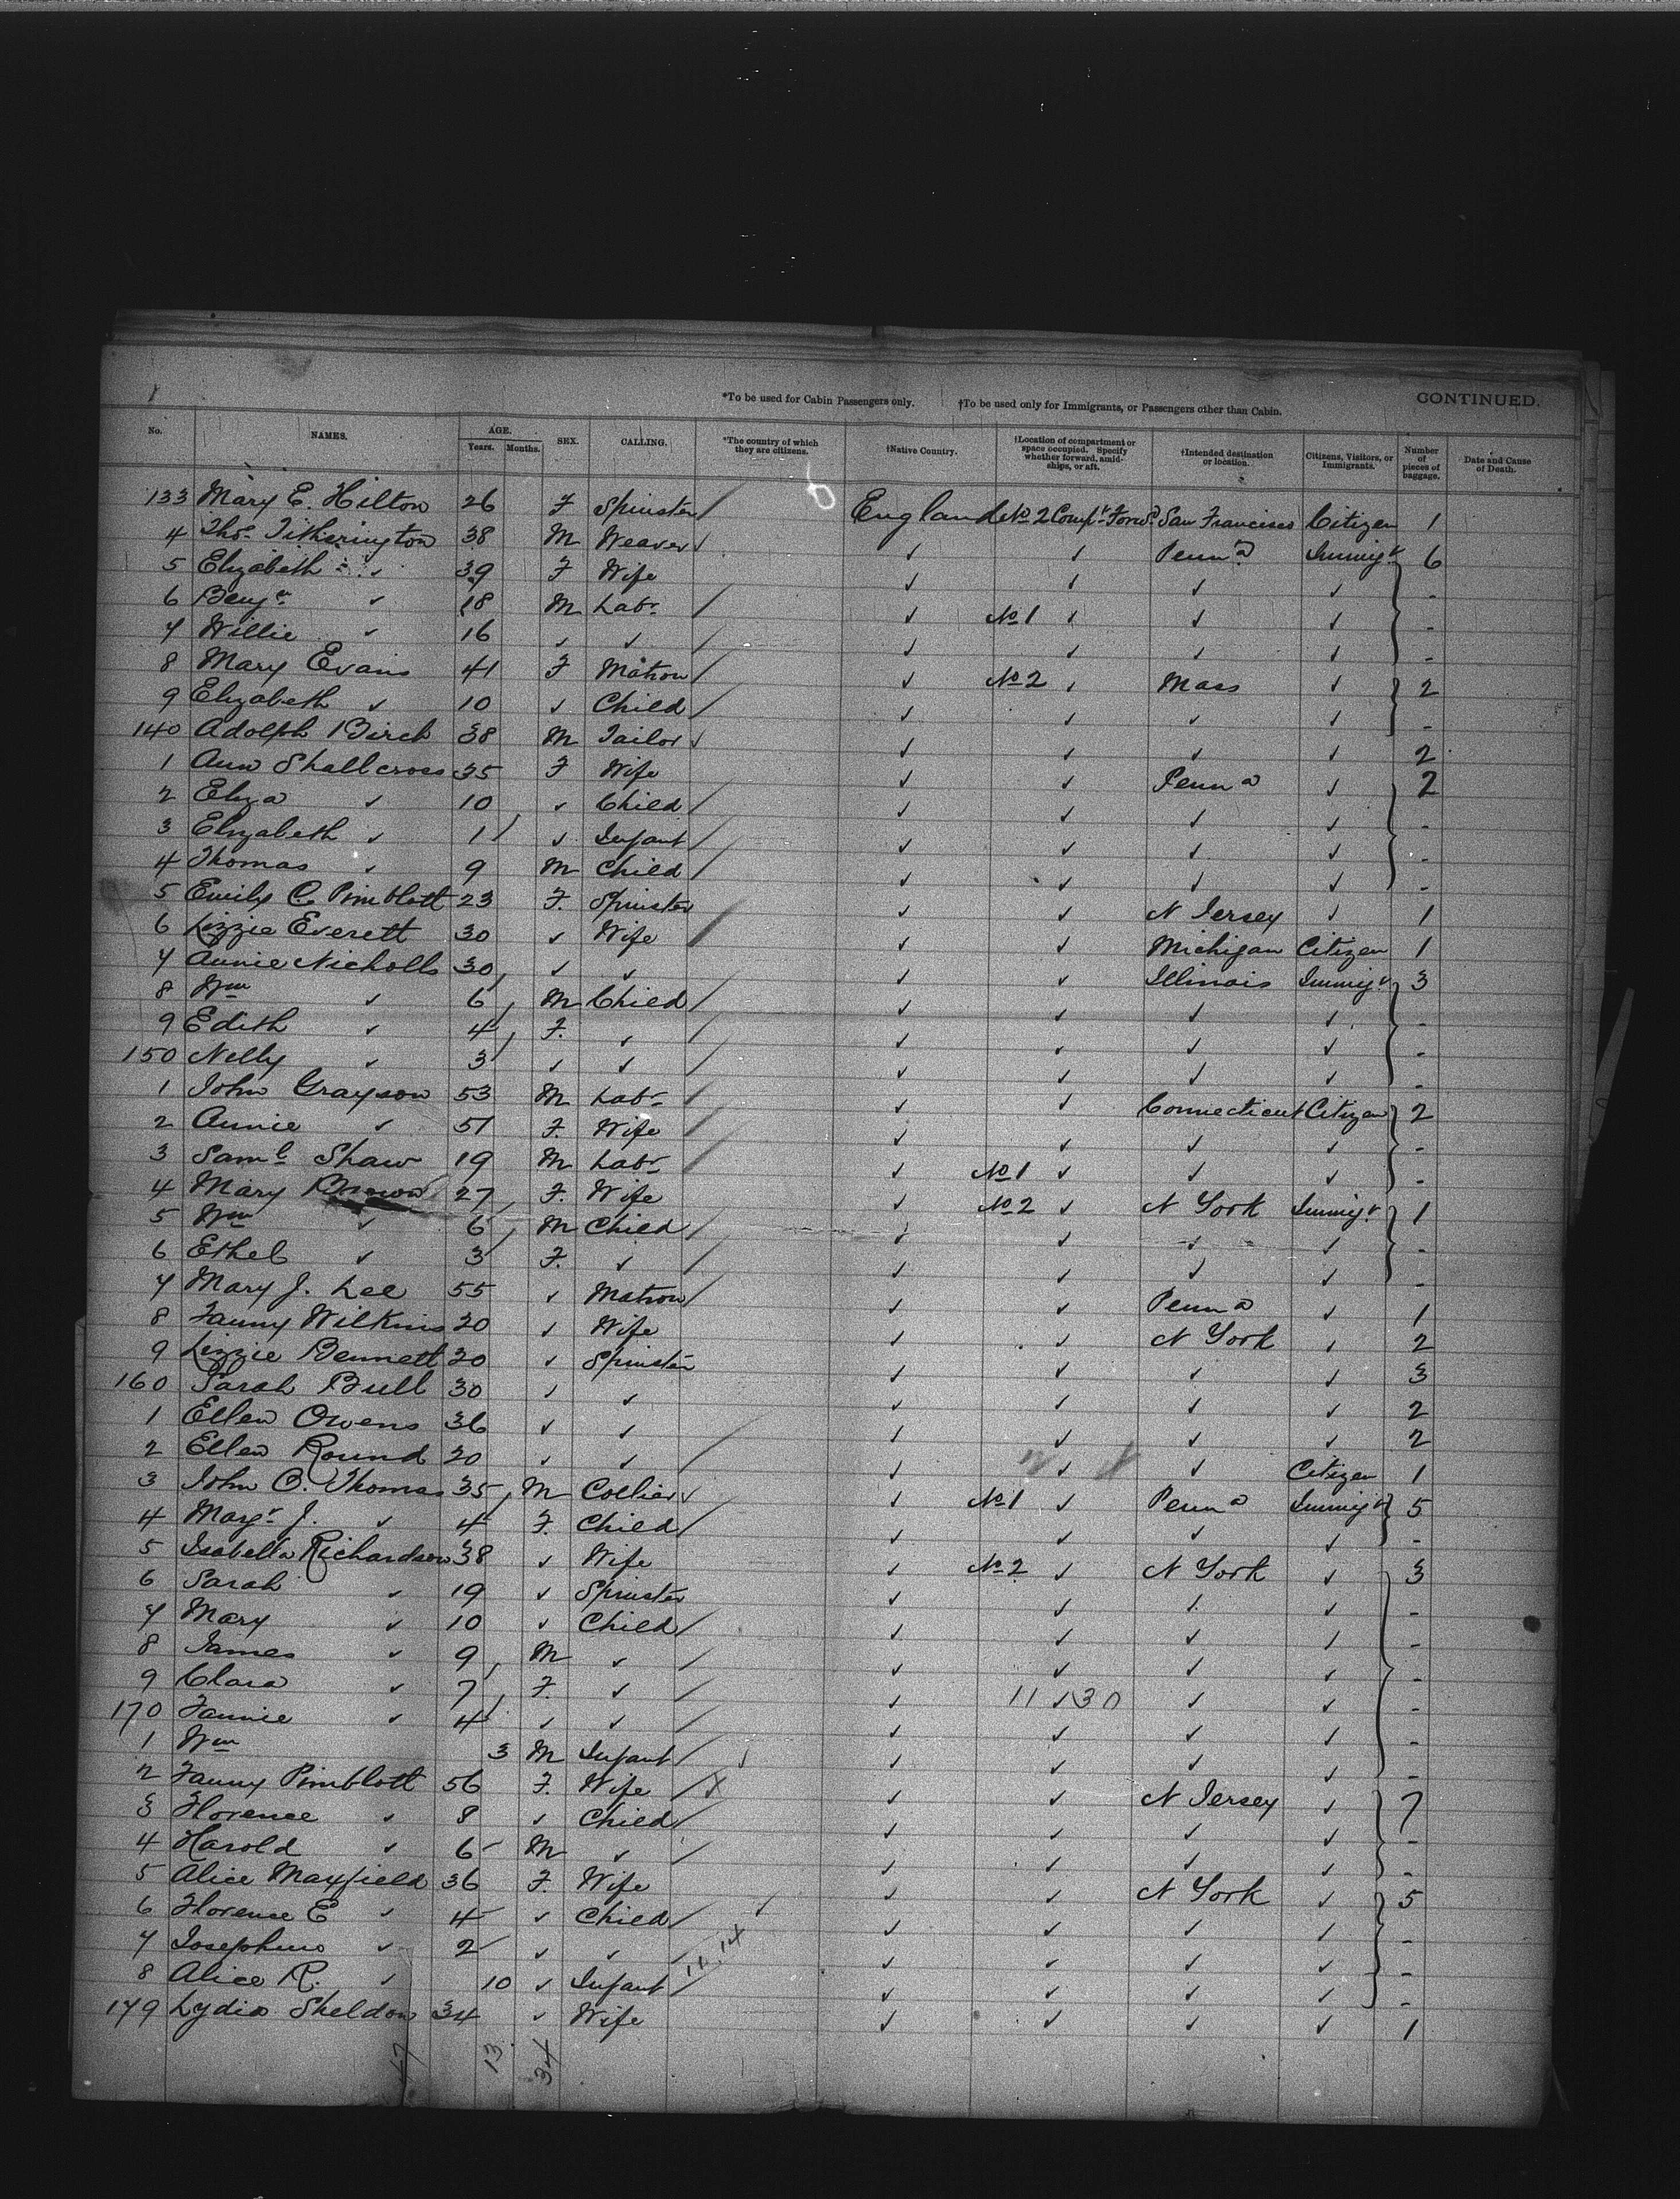 *To be used for Cabin Passengers only. †To be used only for Immigrants, or Passengers other than Cabin. CONTINUED.
No. NAMES. AGE. Years. Months. SEX. CALLING. *The country of which they are citizens. †Native Country. †Location of compartment or space occupied. Specify whether forward, amidships, or aft. †Intended destination or location. Citizens, Visitors, or Immigrants. Number of pieces of baggage. Date and Cause of Death.
133 Mary E. Hilton 26 F Spinster / England No 2 Compt Forwd San Francisco Citizen 1
4 Thos Titherington 38 M Weaver ✓ ✓ ✓ Penna Immigt 6
5 Elizabeth ✓ 39 F Wife ✓ ✓ ✓ ✓ -
6 Benjn ✓ 18 M Labr / ✓ No 1 ✓ ✓ ✓ -
7 Willie ✓ 16 ✓ ✓ / ✓ ✓ ✓ ✓ -
8 Mary Evans 41 F Matron / ✓ No 2 ✓ Mass ✓ 2
9 Elizabeth ✓ 10 ✓ Child / ✓ ✓ ✓ ✓ -
140 Adolph Birch 38 M Tailor ✓ ✓ ✓ ✓ ✓ 2
1 Ann Shallcross 35 F Wife ✓ ✓ Penna ✓ 2
2 Eliza ✓ 10 ✓ Child / ✓ ✓ ✓ ✓ -
3 Elizabeth ✓ 1 ✓ Infant / ✓ ✓ ✓ ✓ -
4 Thomas ✓ 9 M Child / ✓ ✓ ✓ ✓ -
5 Emily C Pimblott 23 F. Spinster ✓ ✓ N Jersey ✓ 1
6 Lizzie Everett 30 ✓ Wife / ✓ ✓ Michigan Citizen 1
7 Annie Nicholls 30 ✓ ✓ ✓ ✓ Illinois Immigt 3
8 Wm ✓ 6 M Child / ✓ ✓ ✓ ✓ -
9 Edith ✓ 4 F. ✓ / ✓ ✓ ✓ ✓ -
150 Nelly ✓ 3 ✓ ✓ / ✓ ✓ ✓ ✓ -
1 John Grayson 53 M Labr / ✓ ✓ Connecticut Citizen 2
2 Annie ✓ 51 F. Wife / ✓ ✓ ✓ ✓ -
3 Saml Shaw 19 M Labr / ✓ No 1 ✓ ✓ ✓ -
4 Mary Brown 27 F. Wife ✓ No 2 ✓ N York Immigt 1
5 Wm ✓ 6 M Child / ✓ ✓ ✓ ✓ -
6 Ethel ✓ 3 F. ✓ / ✓ ✓ ✓ ✓ -
7 Mary J. Lee 55 ✓ Matron / ✓ ✓ Penna ✓ 1
8 Fanny Wilkins 20 ✓ Wife ✓ ✓ N York ✓ 2
9 Lizzie Bennett 20 ✓ Spinster ✓ ✓ ✓ ✓ 3
160 Sarah Bull 30 ✓ ✓ ✓ ✓ ✓ ✓ 2
1 Ellen Owens 36 ✓ ✓ / ✓ ✓ ✓ ✓ 2
2 Ellen Round 20 ✓ ✓ / ✓ ✓ ✓ Citizen 1
3 John C. Thomas 35 M Collier ✓ ✓ No 1 ✓ Penna Immigt 5
4 Margt J. ✓ 4 F. Child / ✓ ✓ ✓ ✓ -
5 Isabella Richardson 38 ✓ Wife ✓ No 2 ✓ N York ✓ 3
6 Sarah ✓ 19 ✓ Spinster ✓ ✓ ✓ ✓ -
7 Mary ✓ 10 ✓ Child / ✓ ✓ ✓ ✓ -
8 James ✓ 9 M ✓ / ✓ ✓ ✓ ✓ -
9 Clara ✓ 7 F. ✓ / ✓ 11 ✓ 30 ✓ ✓ -
170 Fannie ✓ 4 ✓ ✓ / ✓ ✓ ✓ ✓ -
1 Wm 3 M Infant / ✓ ✓ ✓ ✓ -
2 Fanny Pimblott 56 F. Wife / X ✓ ✓ N Jersey ✓ 7
3 Florence ✓ 8 ✓ Child / ✓ ✓ ✓ ✓ -
4 Harold ✓ 6 M ✓ / ✓ ✓ ✓ ✓ -
5 Alice Mayfield 36 F. Wife ✓ ✓ N York ✓ 5
6 Florence E ✓ 4 ✓ Child / ✓ ✓ ✓ ✓ -
7 Josephine ✓ 2 ✓ ✓ / ✓ ✓ ✓ ✓ -
8 Alice R. ✓ 10 ✓ Infant / ✓ ✓ ✓ ✓ -
179 Lydia Sheldon 34 ✓ Wife ✓ ✓ ✓ ✓ 1
47 13 34